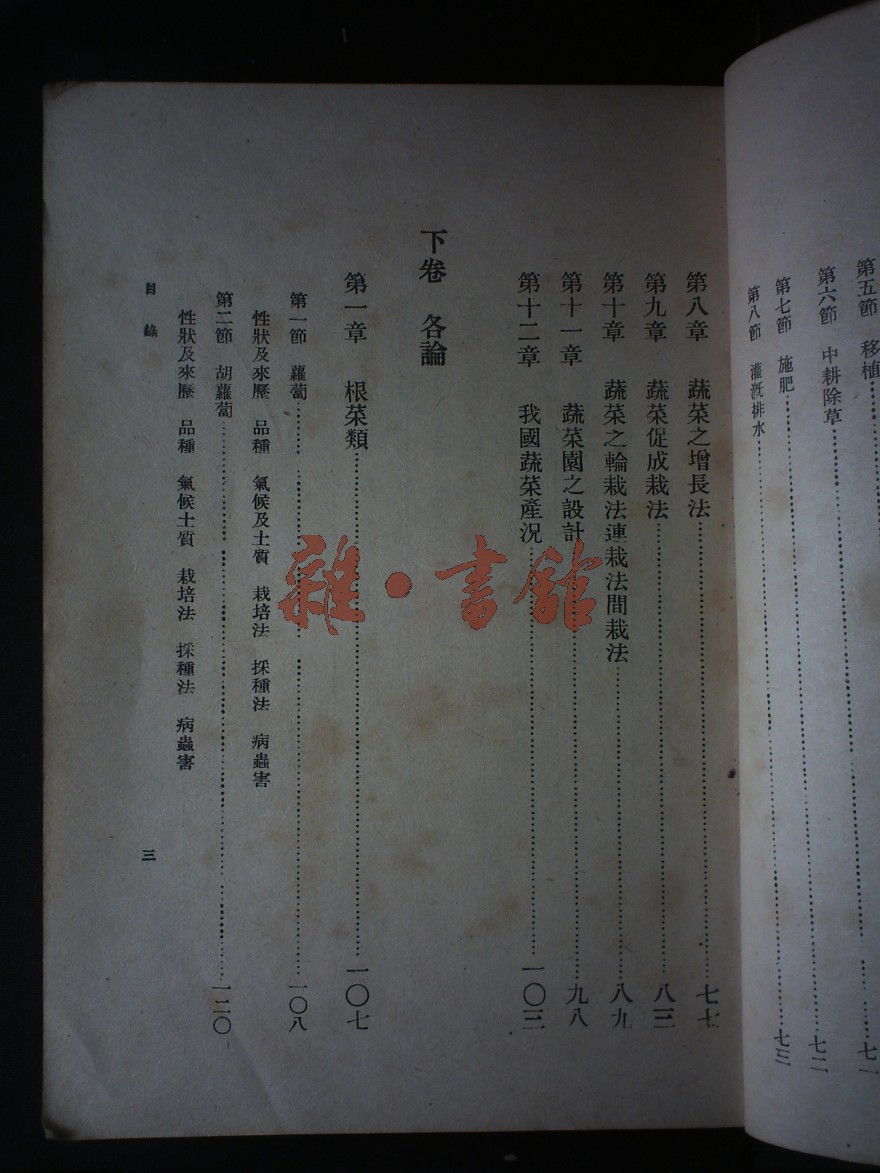 第五節　移植……七一
第六節　中耕除草……七二
第七節　施肥……七三
第八節　灌溉排水……
第八章　蔬菜之增長法……七七
第九章　蔬菜促成栽法……八三
第十章　蔬菜之輪栽法連栽法間栽法……八九
第十一章　蔬菜園之設計……九八
第十二章　我國蔬菜產況……一〇三
下卷　各論
第一章　根菜類……一〇七
第一節　蘿蔔……一〇八
性狀及來歷　品種　氣候及土質　栽培法　採種法　病蟲害
第二節　胡蘿蔔……一二〇
性狀及來歷　品種　氣候土質　栽培法　採種法　病蟲害
目錄
三
雜·書館